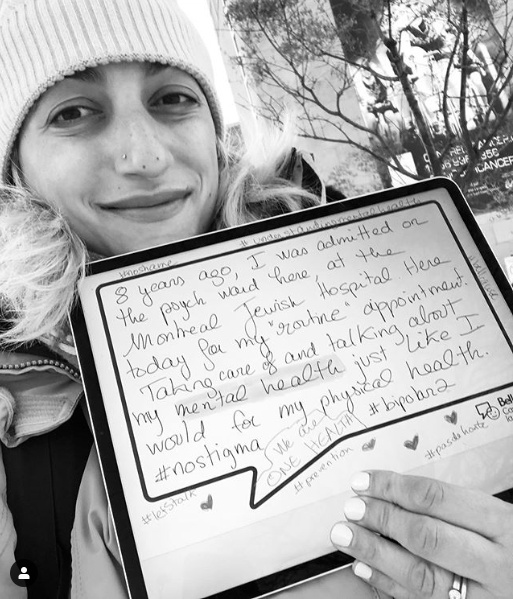 #noshame
#understandingmentalhealth
8 years ago, I was admitted on
the psych ward here, at the
Montreal Jewish Hospital. Here
today for my "routine" appointment.
Taking care of and talking about
my mental health just like I
would for my physical health.
#nostigma
We are
ONE HEALTH
#bipolar2
#letstalk
#prevention
#pasdehonte
Bell
CANCER